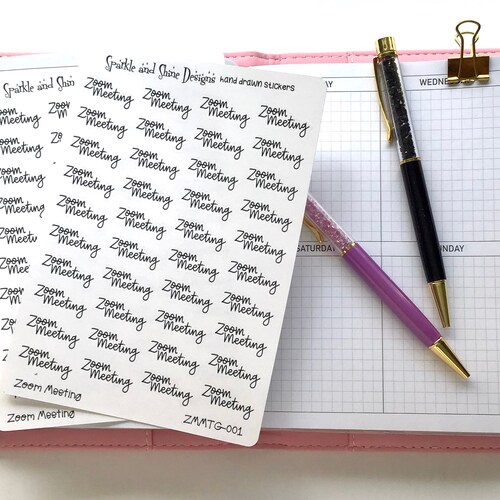 Sparkle and Shine Designs hand drawn stickers
Zoom Zoom Zoom Zoom
Meeting Meeting Meeting Meeting
Zoom Zoom Zoom Zoom
Meeting Meeting Meeting Meeting
Zoom Zoom Zoom Zoom
Meeting Meeting Meeting Meeting
Zoom Zoom Zoom Zoom
Meeting Meeting Meeting Meeting
Zoom Zoom Zoom Zoom
Meeting Meeting Meeting Meeting
Zoom Zoom Zoom Zoom
Meeting Meeting Meeting Meeting
Zoom Zoom Zoom Zoom
Meeting Meeting Meeting Meeting
Zoom Zoom Zoom Zoom
Meeting Meeting Meeting Meeting
Zoom Zoom Zoom Zoom
Meeting Meeting Meeting Meeting
Zoom Zoom Zoom Zoom
Meeting Meeting Meeting Meeting
Zoom Meeting
ZMMTG-001
Sparkle and Shin
Zoom Meeting
WEDNES
SATURDAY
NDAY